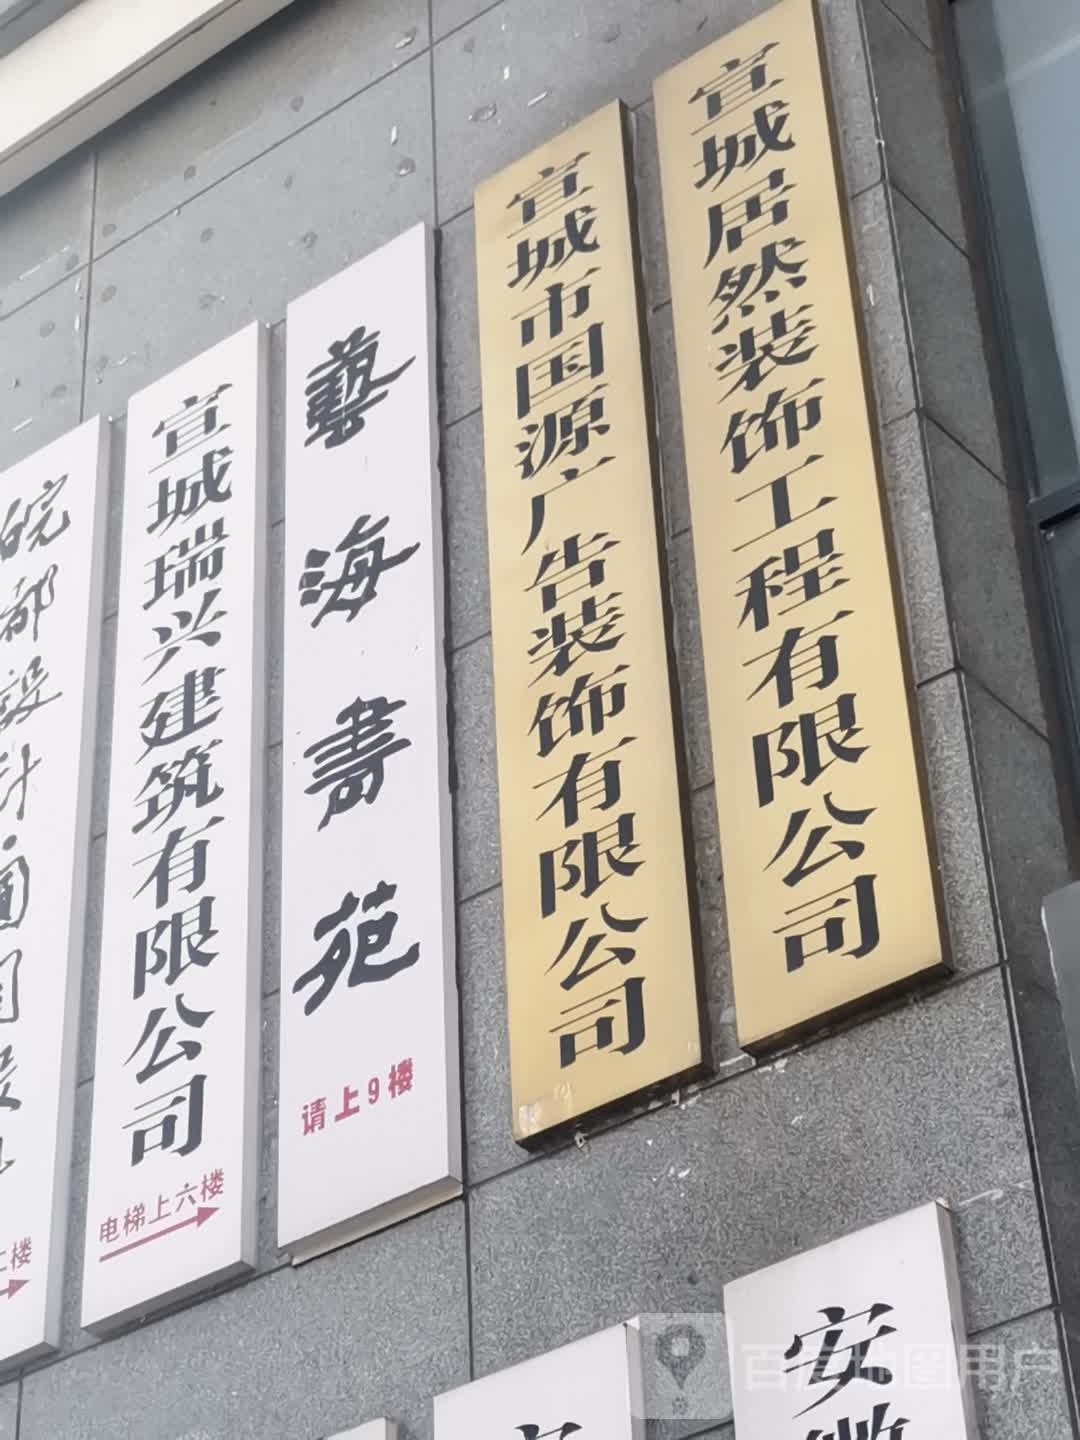 宣城居然装饰工程有限公司
宣城市国源广告装饰有限公司
藝海書苑
请上9楼
宣城瑞兴建筑有限公司
电梯上六楼
皖都設计·圖
楼
安徽
百度地图用户